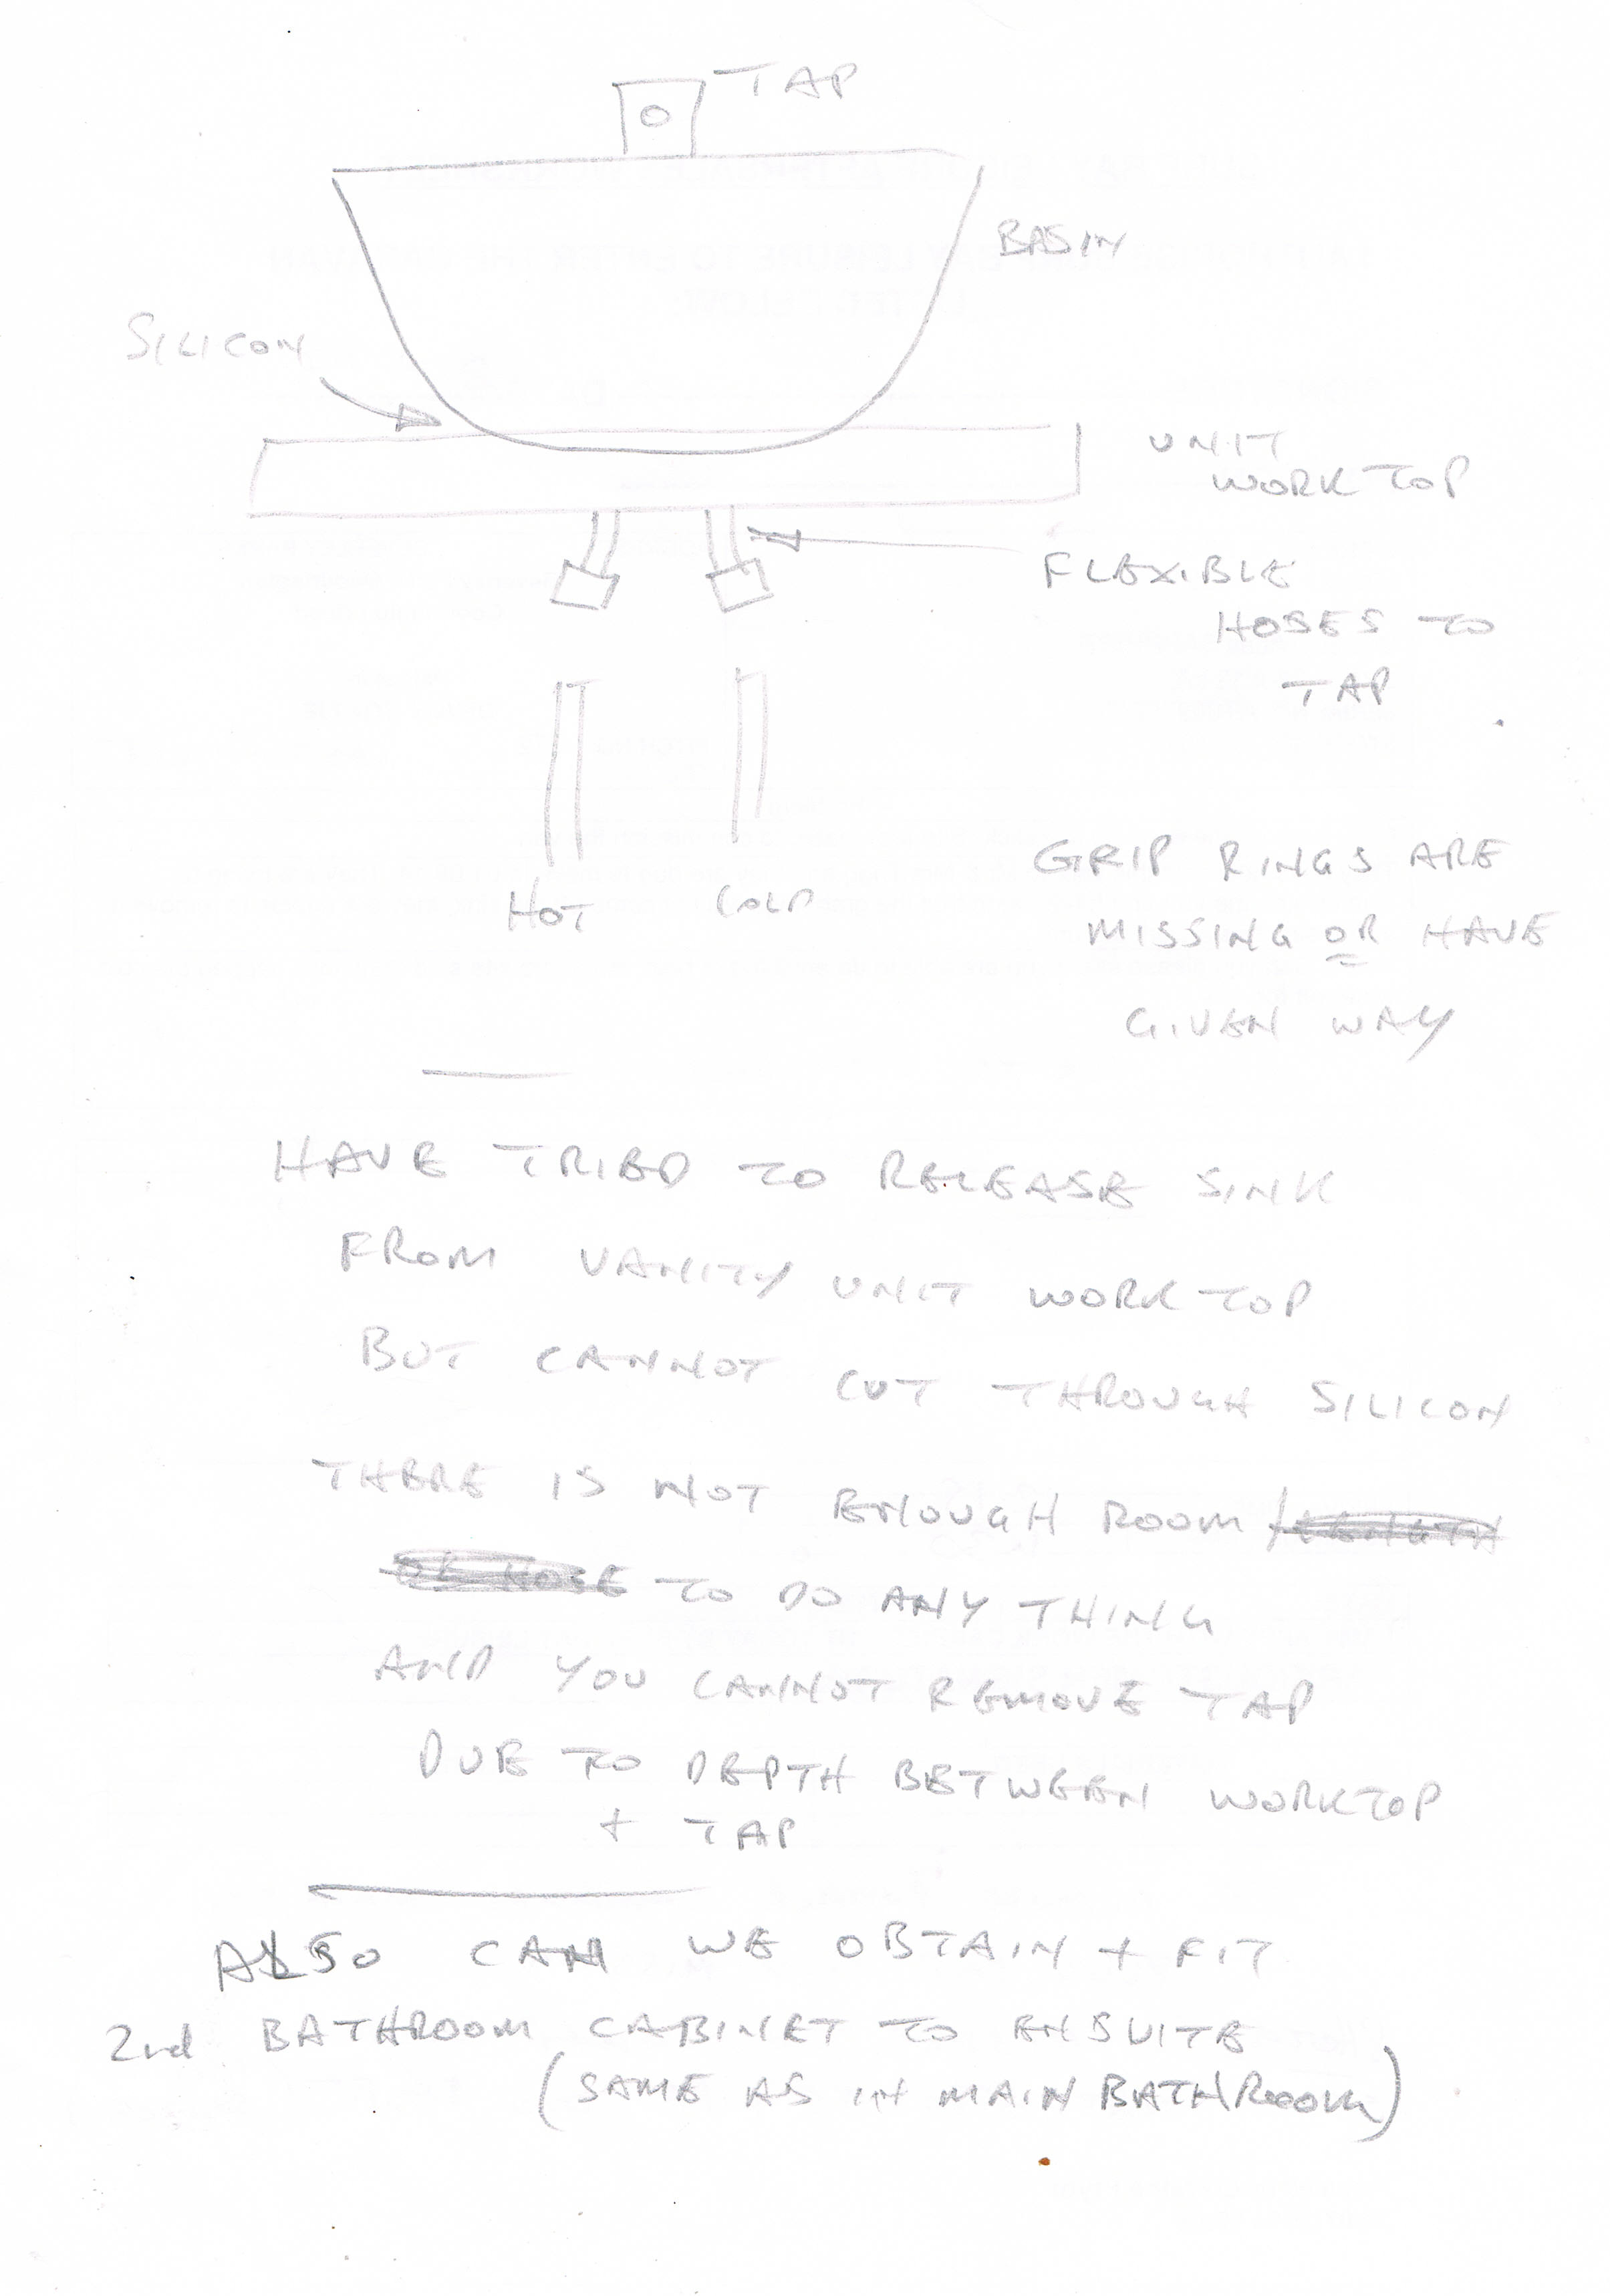 TAP
BASIN
SILICON
UNIT
WORKTOP
FLEXIBLE
HOSES TO
TAP
HOT COLD
GRIP RINGS ARE
MISSING OR HAVE
GIVEN WAY
HAVE TRIED TO RELEASE SINK
FROM VANITY UNIT WORKTOP
BUT CANNOT CUT THROUGH SILICON
THERE IS NOT ENOUGH ROOM
TO DO ANY THING
AND YOU CANNOT REMOVE TAP
DUE TO DEPTH BETWEEN WORKTOP
+ TAP
ALSO CAN WE OBTAIN + FIT
2nd BATHROOM CABINET TO ENSUITE
(SAME AS IN MAIN BATHROOM)